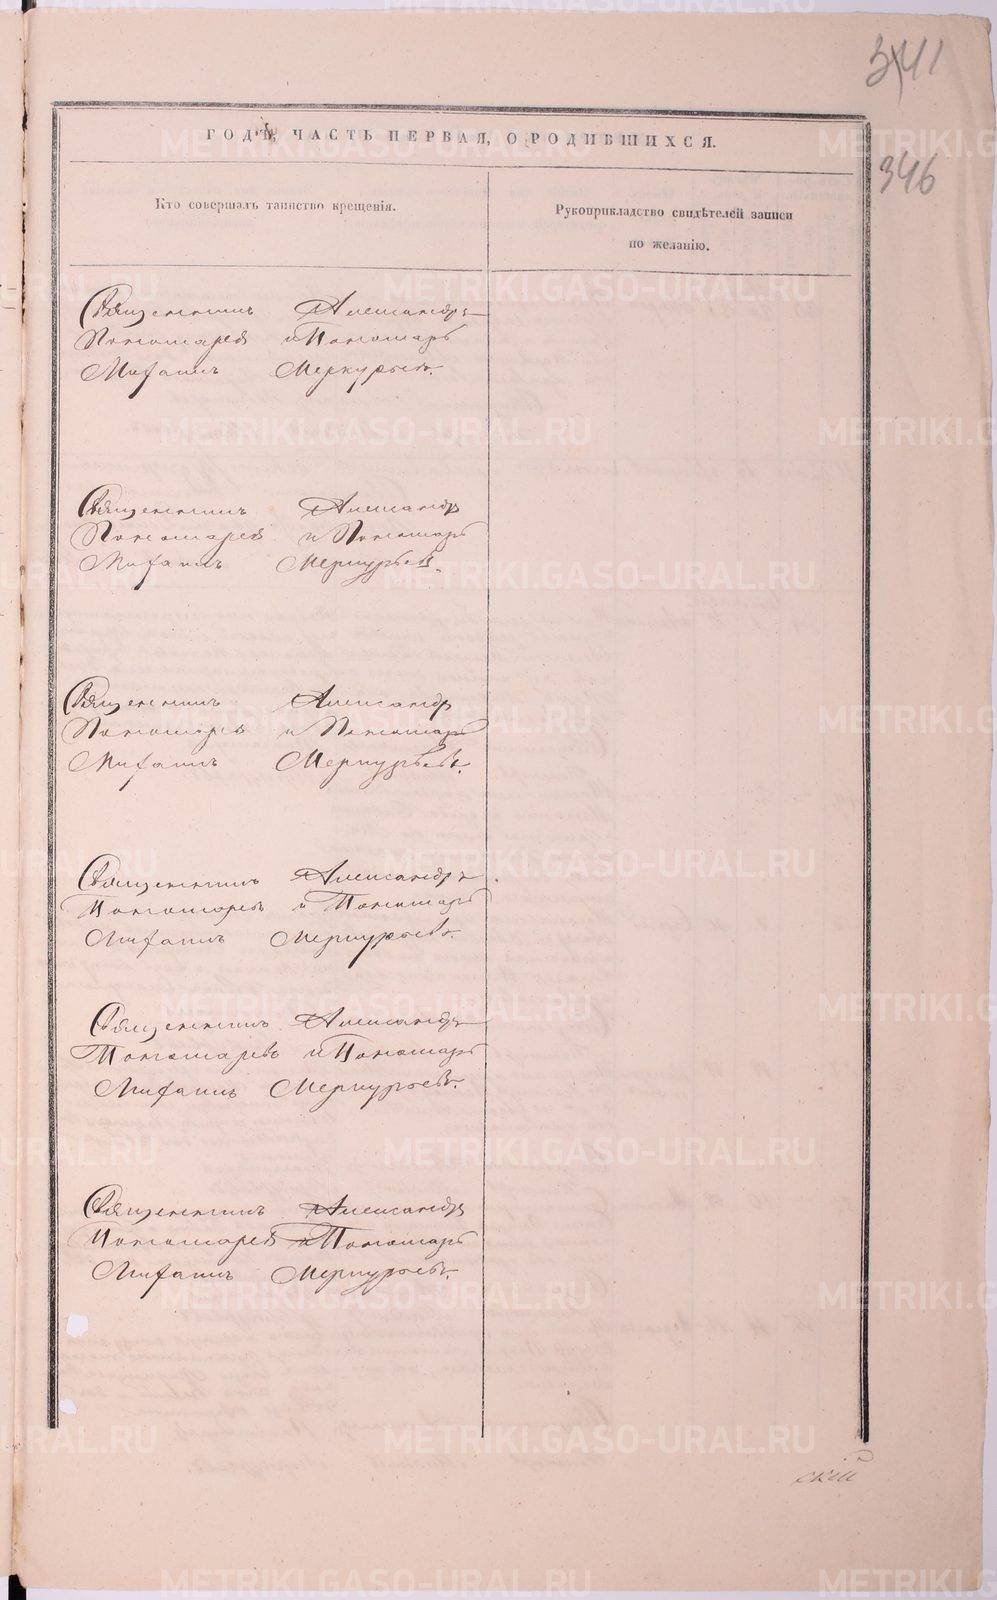 341
346
ГОДѢ, ЧАСТЬ ПЕРВАЯ, О РОДИВШИХСЯ.
Кто совершалъ таинство крещенія.
Рукоприкладство свидѣтелей записи
по желанію.
Священникъ Александръ
Пономаревъ и Пономарь
Михаилъ Меркурьевъ.
Священникъ Александръ
Пономаревъ и Пономарь
Михаилъ Меркурьевъ.
Священникъ Александръ
Пономаревъ и Пономарь
Михаилъ Меркурьевъ.
Священникъ Александръ
Пономаревъ и Пономарь
Михаилъ Меркурьевъ.
Священникъ Александръ
Пономаревъ и Пономарь
Михаилъ Меркурьевъ.
Священникъ Александръ
Пономаревъ и Пономарь
Михаилъ Меркурьевъ.
скій
METRIKI.GASO-URAL.RU